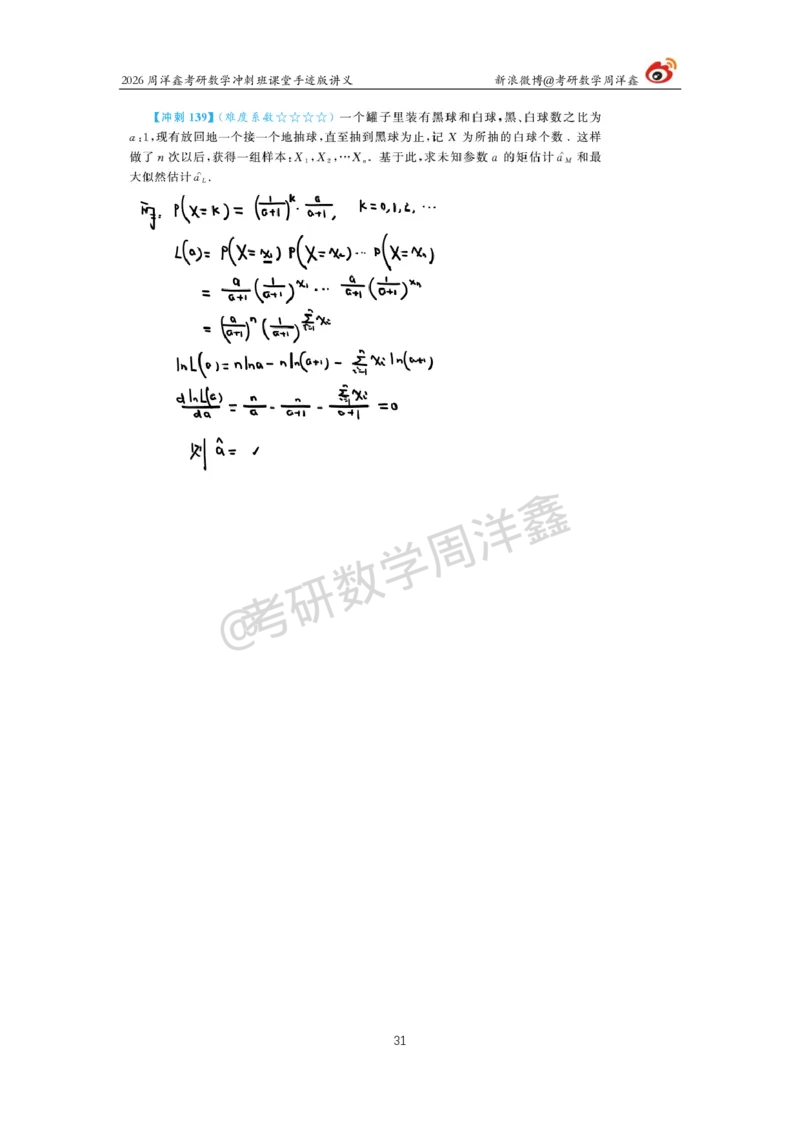 2026周洋鑫考研数学冲刺班课堂手迹版讲义 新浪微博@考研数学周洋鑫
【冲刺 139】(难度系数☆☆☆☆) 一个罐子里装有黑球和白球,黑、白球数之比为
a:1,现有放回地一个接一个地抽球,直至抽到黑球为止,记 X 为所抽的白球个数. 这样
做了 n 次以后,获得一组样本:X₁,X₂,…Xₙ. 基于此,求未知参数 a 的矩估计 â_M 和最
大似然估计 â_L.
P(X=k) = (1/(a+1))^k · a/(a+1), k=0,1,2,…
L(a) = P(X=x₁) P(X=x₂) … P(X=xₙ)
= a/(a+1) (1/(a+1))^x₁ … a/(a+1) (1/(a+1))^xₙ
= (a/(a+1))^n (1/(a+1))^∑_{i=1}^n xᵢ
lnL(a) = nlna - nln(a+1) - ∑_{i=1}^n xᵢ ln(a+1)
dlnL(a)/da = n/a - n/(a+1) - ∑_{i=1}^n xᵢ/(a+1) = 0
则 â =
@考研数学周洋鑫
31